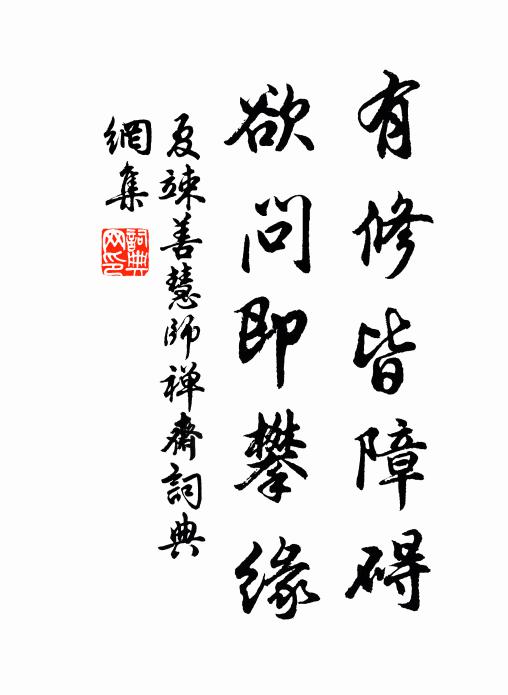 有修皆障碍
欲问即攀缘
夏竦善慧师禅斋詞典
網集
詞典
网印